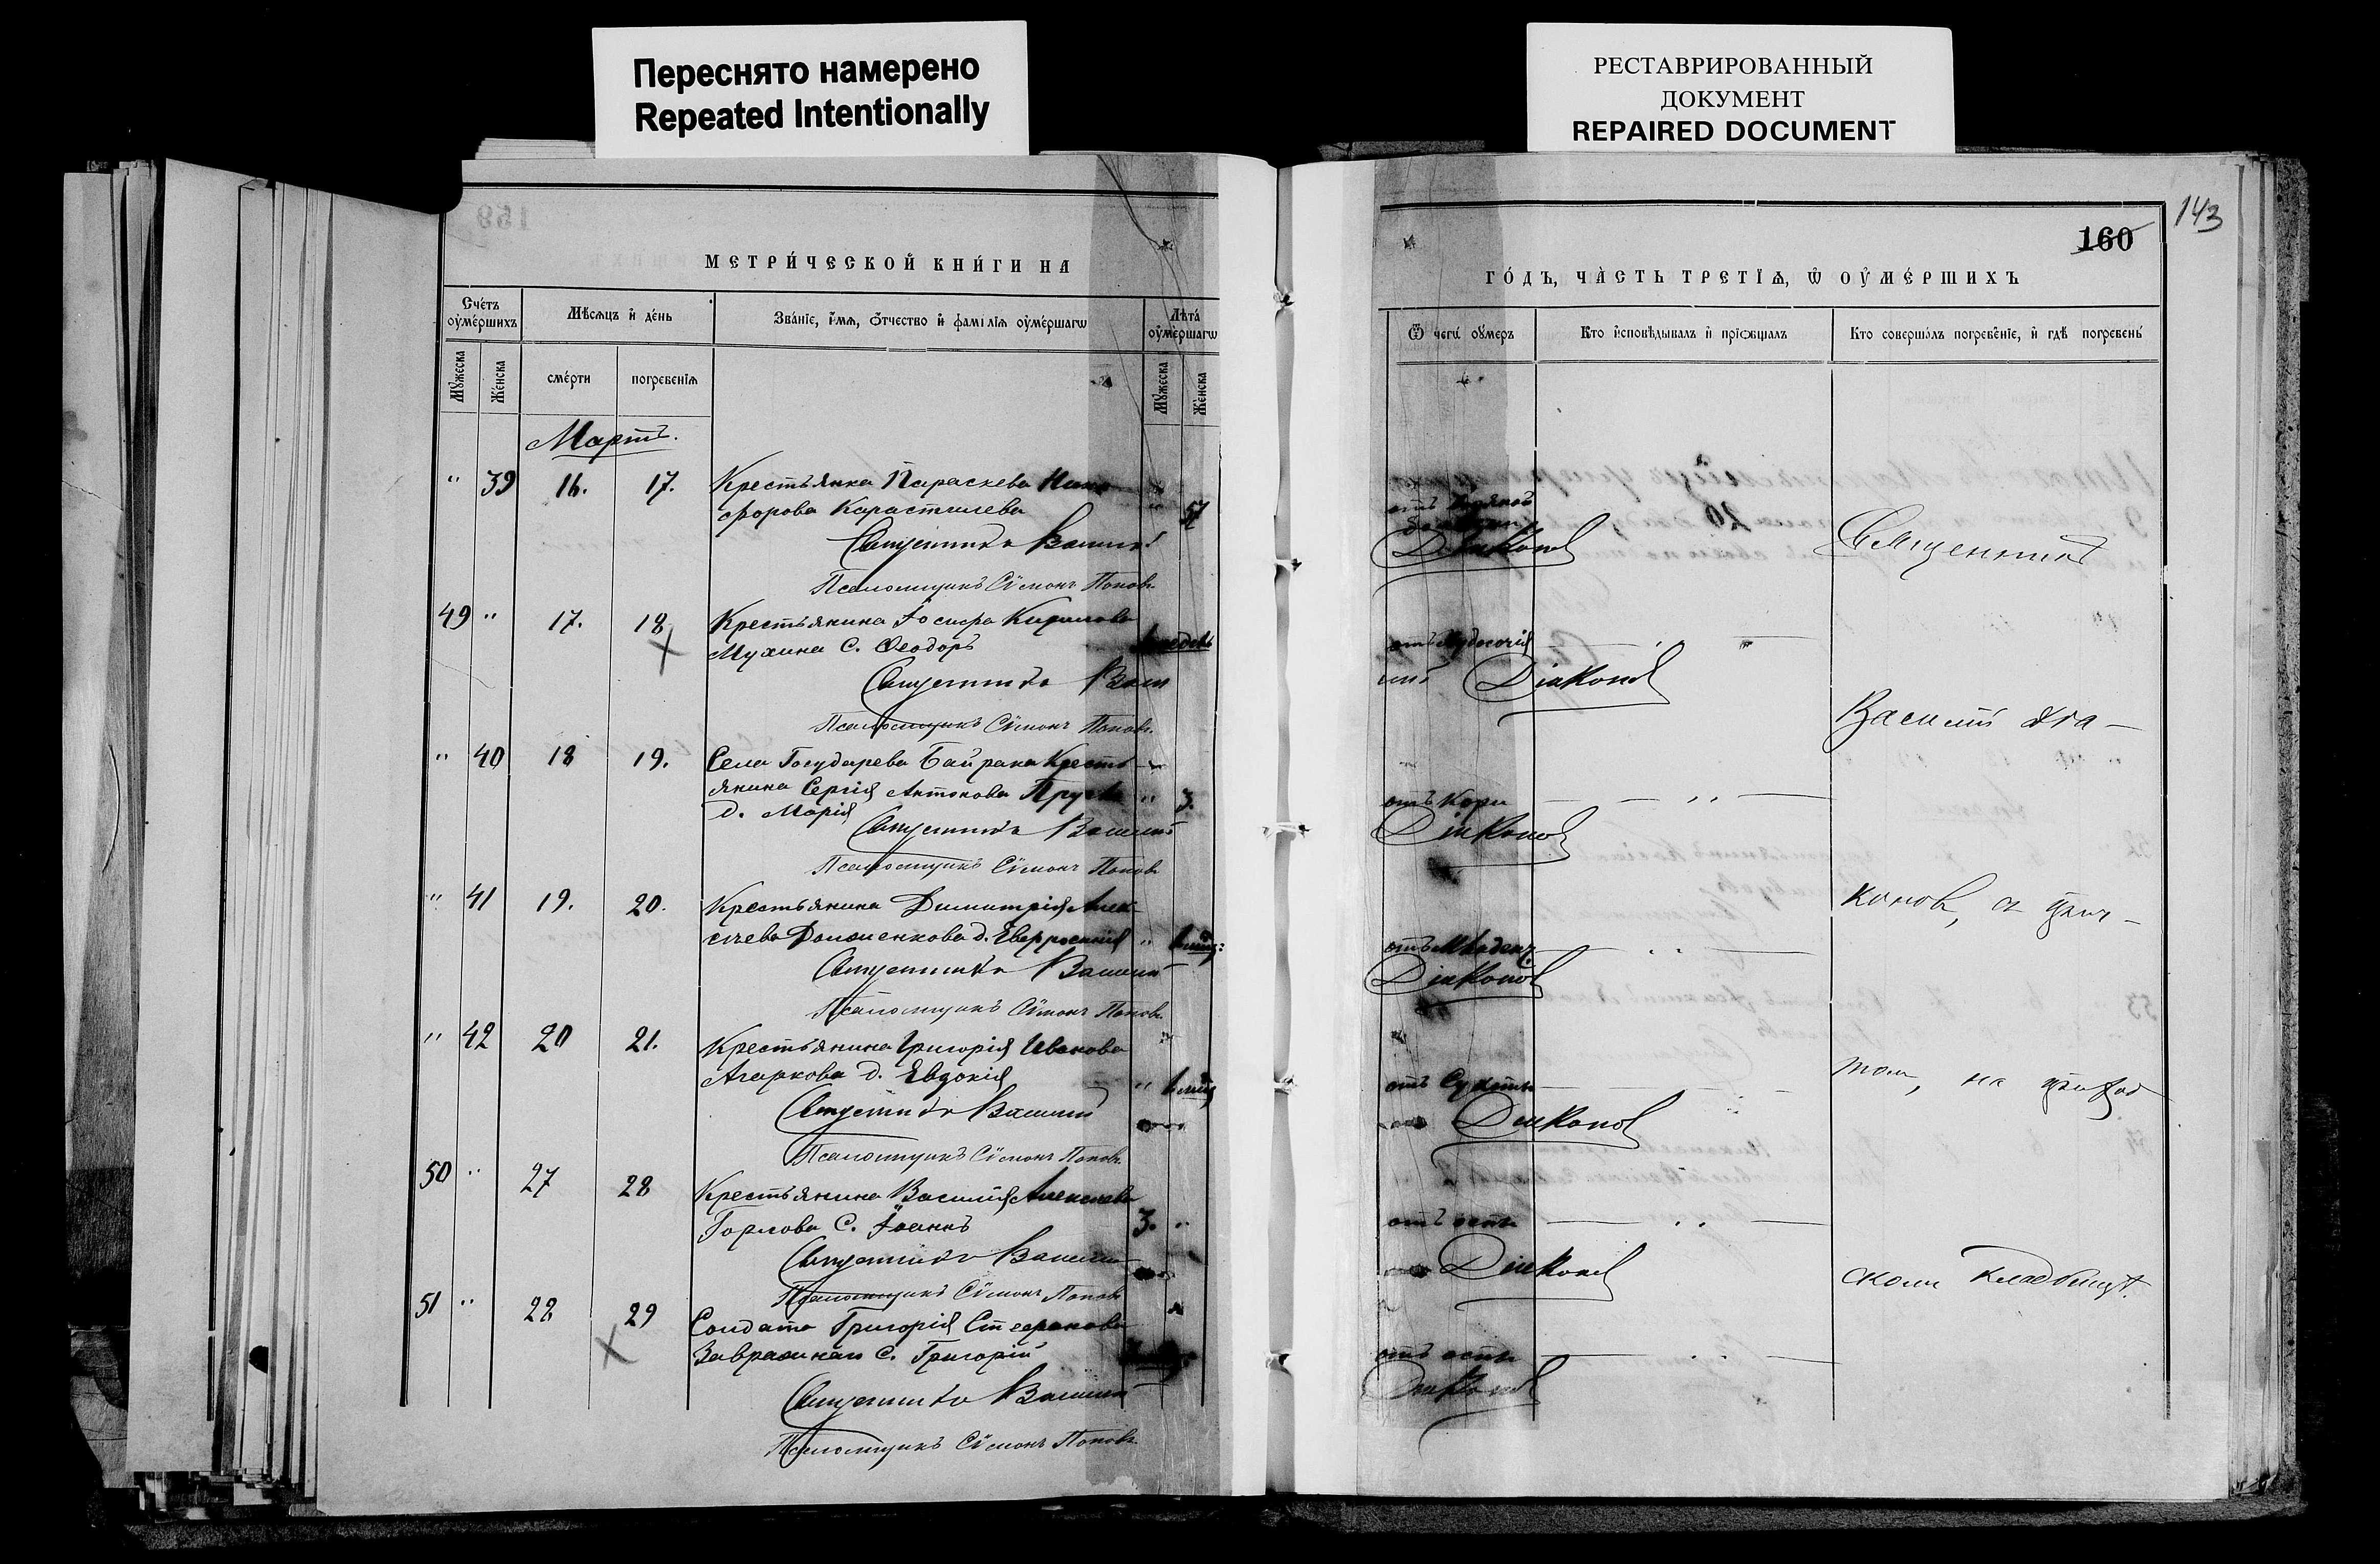 Переснято намерено
Repeated Intentionally
РЕСТАВРИРОВАННЫЙ
ДОКУМЕНТ
REPAIRED DOCUMENT
159
МЕТРИ́ЧЕСКОЙ КНИ́ГИ НА
Сче́тъ оу҆ме́ршихъ
Мѣ́сяцъ и҆ де́нь
Зва́нїе, и҆́мѧ, ѻ҆́тчество и҆ фами́лїѧ оу҆ме́ршагѡ
Лѣта̀ оу҆ме́ршагѡ
Мꙋ́жеска
Же́нска
сме́рти
погребе́нїѧ
Мꙋ́жеска
Же́нска
Мартъ.
" 39 16. 17. Крестьянка Параскева Ники
форова 57
Священникъ Василій
Псаломщикъ Сѵмонъ Поповъ
49 " 17. 18 Крестьянина Іосифа Кирилова
Мухина с. Ѳеодоръ
Священникъ Васи
Псаломщикъ Сѵмонъ Поповъ.
" 40 18 19. Села Государева Байрака Кресть
янина Сергія Антонова " 3.
д. Марія
Священникъ Василій
Псаломщикъ Сѵмонъ Поповъ
" 41 19. 20. Крестьянина Димитрія Алек
сѣева Долженкова д. Евфросинія "
Священникъ Василій
Псаломщикъ Сѵмонъ Поповъ.
" 42 20 21. Крестьянина Григорія Иванова
Агаркова д. Евдокія "
Священникъ Василій
Псаломщикъ Сѵмонъ Поповъ.
50 " 27 28 Крестьянина Василія Алексѣева
Горлова с. Іоаннъ 3. "
Священникъ Василій
Псаломщикъ Сѵмонъ Поповъ
51 " 28 29 Солдата Григорія Стефанова
с. Григорій
Священникъ Василій
Псаломщикъ Сѵмонъ Поповъ
143
160
ГО́ДЪ, ЧА́СТЬ ТРЕТЇѦ, Ѡ҆ ОУ҆МЕ́РШИХЪ
Ѿ чегѡ̀ оу҆́меръ
Кто и҆сповѣ́дывалъ и҆ прїѡбща́лъ
Кто соверша́лъ погребе́нїе, и҆ гдѣ̀ погребены̀
отъ
Діаконовъ
Священникъ
отъ
Діаконовъ
Василій Діа-
отъ Кори
Діаконовъ
коновъ, съ прич-
отъ Младенч.
Діаконовъ
томъ, на приход
отъ Сухотъ
Діаконовъ
отъ оспы
Діаконовъ
скомъ кладбищѣ.
отъ оспы
Діаконовъ